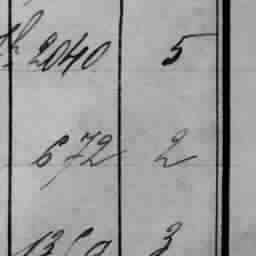 2040 5
672 2
3